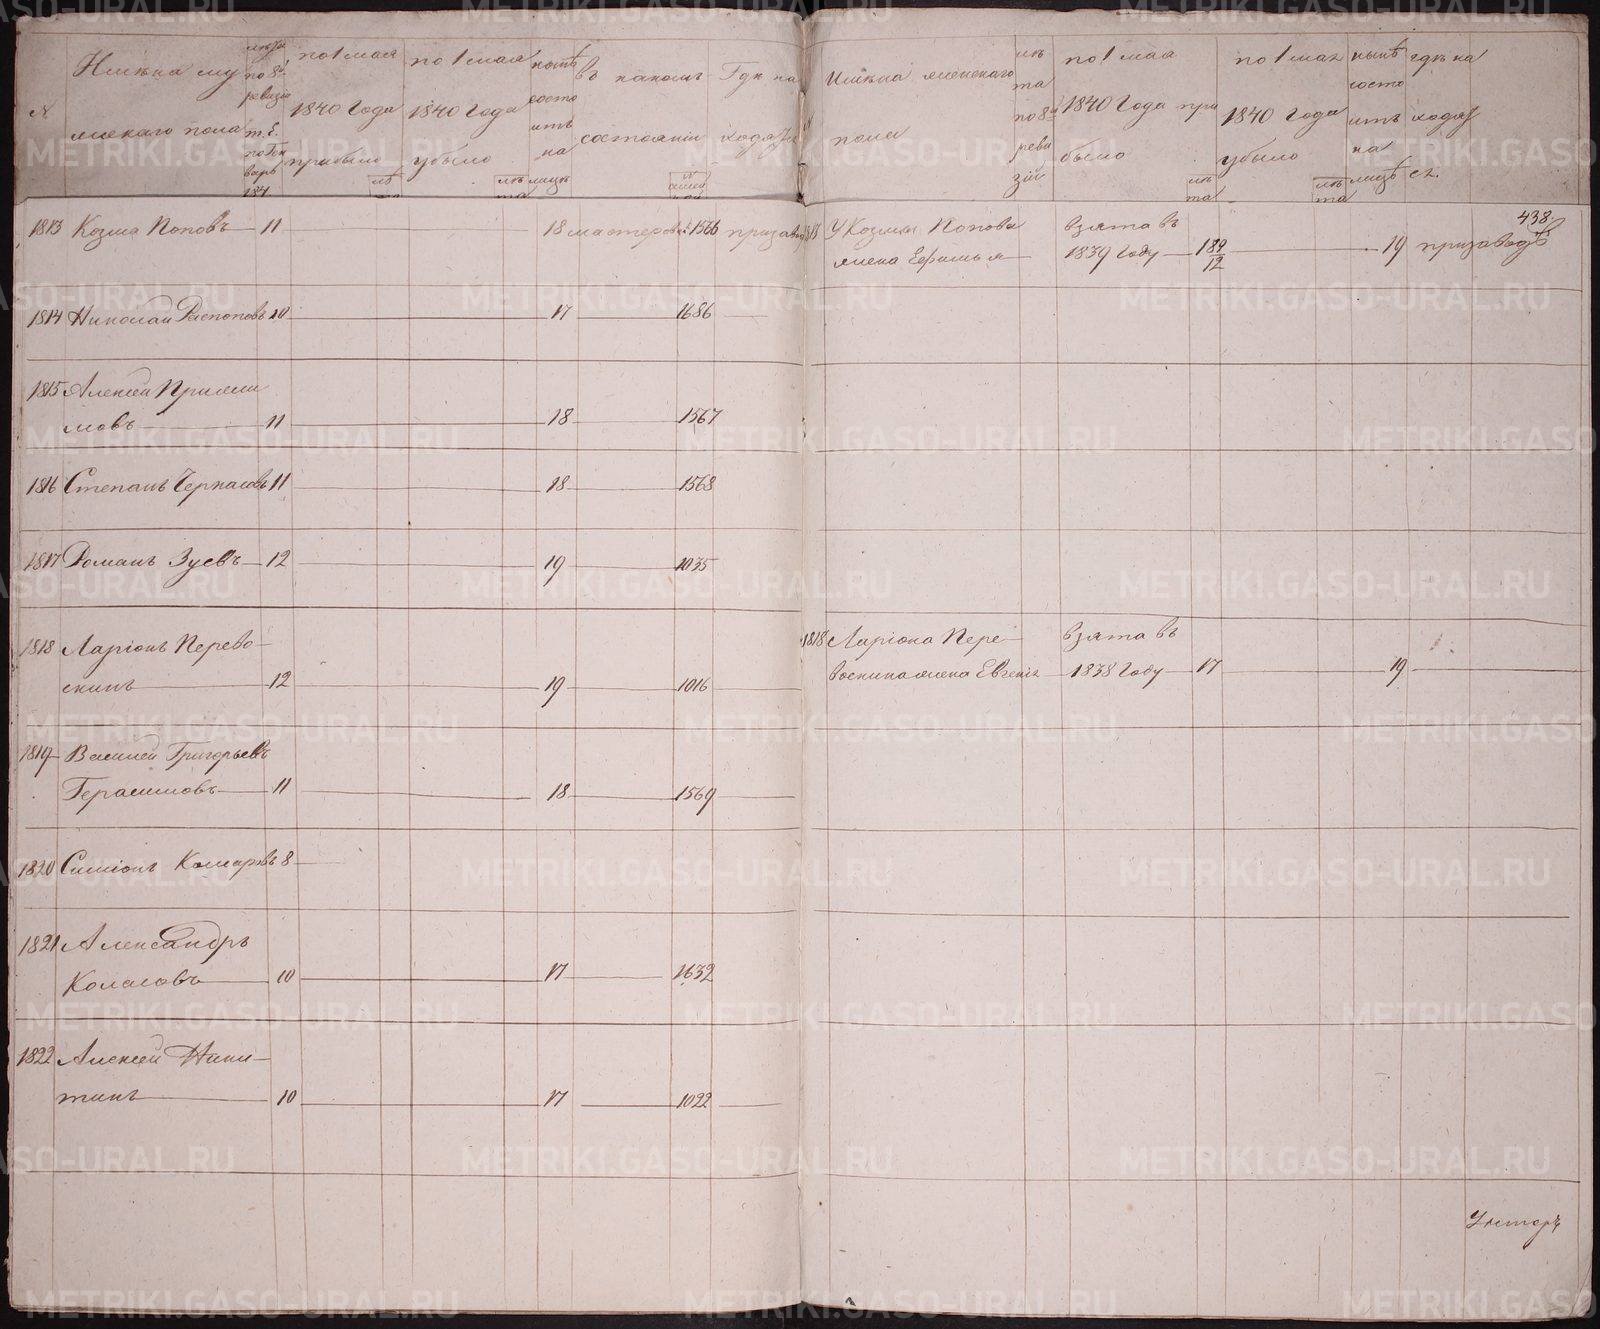 N
Имѣна му
мскаго пола
по 8й
ревизіи
по 1 мая
1840 года
прибыло
лѣ
по 1 мая
1840 года
убыло
лѣ
та
нынѣ
состо
итъ
на
лицѣ
въ какомъ
состояніи
Гдѣ на
ходятся
Имѣна женскаго
пола
лѣ
та
по 8й
реви
зіи
по 1 мая
1840 года при
было
лѣ
та
по 1 мая
1840 года
убыло
лѣ
та
нынѣ
состо
итъ
на
лицѣ
гдѣ на
ходят
ся.
438
1813 Козма Поповъ 11 18 мастеров: 1566 призавод
1813 У Козмы Попова взята въ
жена Ефимья 1839 году 18 9/12 19 призаводѣ
1814 Николай Распоповъ 10 17 1686
1815 Алексей Прижи
мовъ 11 18 1567
1816 Степанъ Черкасовъ 11 18 1568
1817 Романъ Зуевъ 12 19 1035
1818 Ларіонъ Перево
скинъ 12 19 1016
1818 Ларіона Пере взята въ
воскина жена Евгенія 1838 году 17 19
1819 Василей Григорьевъ
Герасимовъ 11 18 1569
1820 Симіонъ Комаровъ 8
1821 Александръ
Коласовъ 10 17 1632
1822 Алексей Ники
тинъ 10 17 1022
METRIKI.GASO-URAL.RU